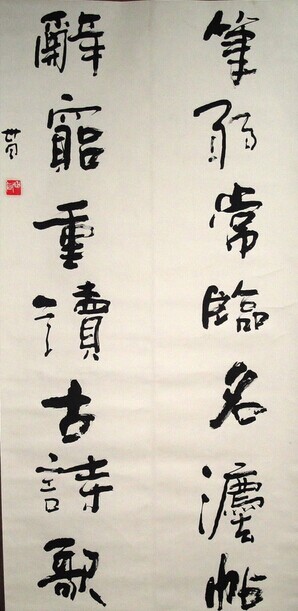 筆弱常臨名灋帖
辭窮重讀古詩歌